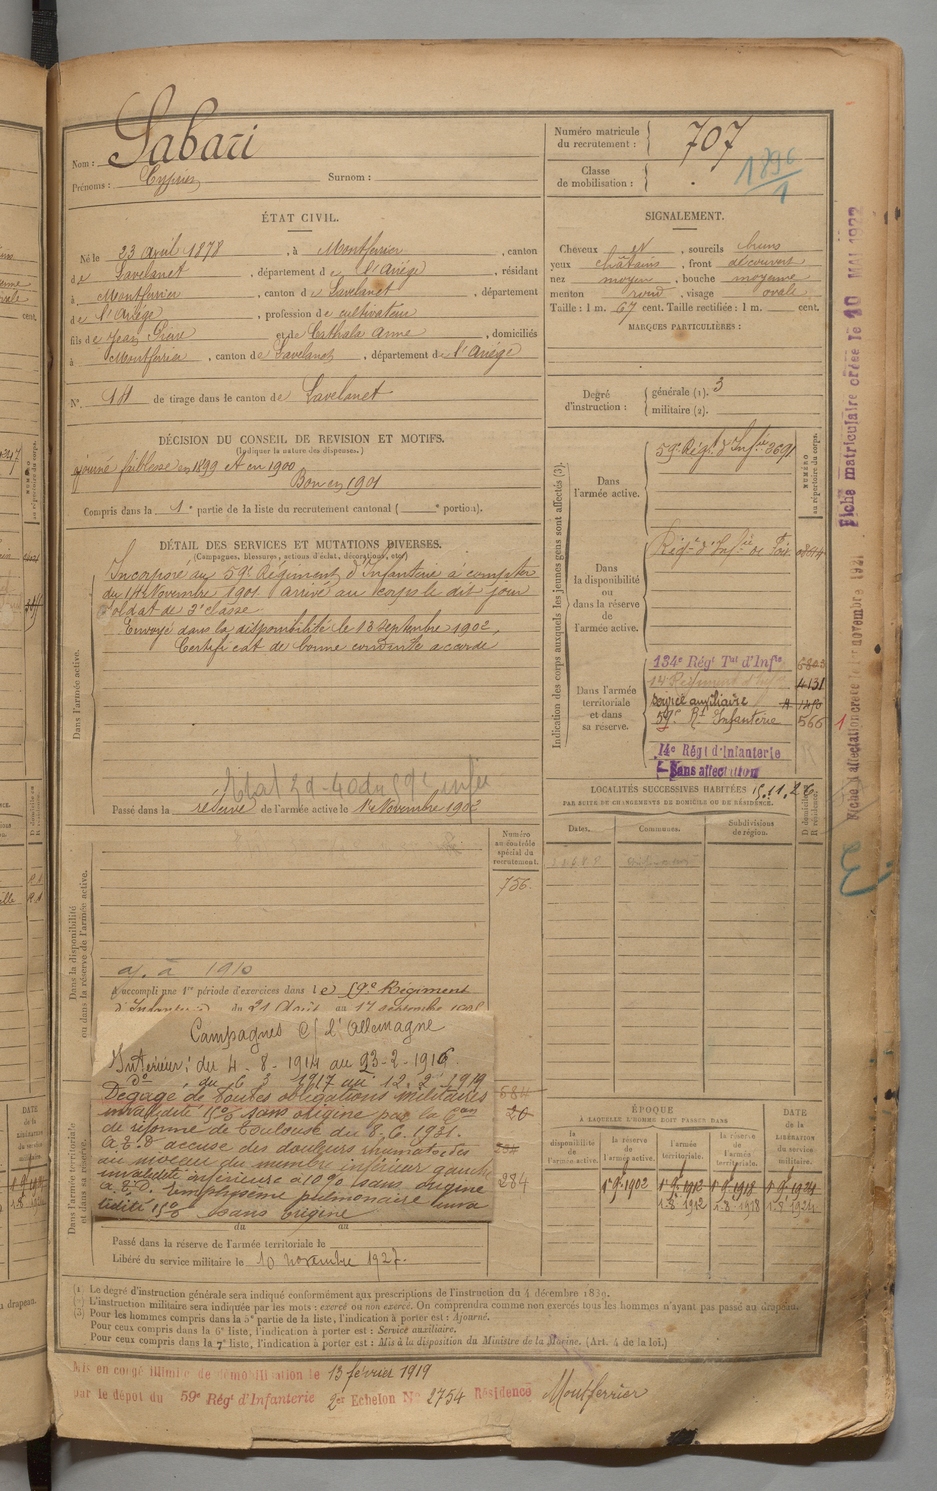 Nom : Sabari
Prénoms : Cyprien Surnom :
Numéro matricule du recrutement : 707
Classe de mobilisation : 1896/1
ÉTAT CIVIL.
Né le 23 Avril 1878, à Montferrier, canton
de Lavelanet, département de l'Ariége, résidant
à Montferrier, canton de Lavelanet, département
de l'Ariége, profession de cultivateur
fils de Jean Pierre et de Esthala Anne, domiciliés
à Montferrier, canton de Lavelanet, département de l'Ariége
N° 14 de tirage dans le canton de Lavelanet
SIGNALEMENT.
Cheveux et, sourcils bruns
yeux châtains, front découvert
nez moyen, bouche moyenne
menton rond, visage ovale
Taille : 1 m. 67 cent. Taille rectifiée : 1 m. cent.
MARQUES PARTICULIÈRES :
Degré d'instruction : générale (1). 3
militaire (2).
DÉCISION DU CONSEIL DE REVISION ET MOTIFS.
(Indiquer la nature des dispenses.)
ajourné faiblesse en 1899 et en 1900
Bon en 1901
Compris dans la 1e partie de la liste du recrutement cantonal ( e portion).
DÉTAIL DES SERVICES ET MUTATIONS DIVERSES.
(Campagnes, blessures, actions d'éclat, décorations, etc.)
Dans l'armée active.
Incorporé au 59e Régiment d'Infanterie à compter
du 14 Novembre 1901 arrivé au corps le dit jour
soldat de 2e classe
Envoyé dans la disponibilité le 13 Septembre 1902.
Certificat de bonne conduite accordé
Passé dans la réserve de l'armée active le 1 Novembre 1902
Indication des corps auxquels les jeunes gens sont affectés (3).
NUMÉRO au répertoire du corps.
Dans l'armée active.
59e Régt d'Infie 3691
Dans la disponibilité ou dans la réserve de l'armée active.
Régt d'Infie de Foix
Dans l'armée territoriale et dans sa réserve.
134e Régt Tal d'Infie
4131
service auxiliaire
59e Rt Infanterie 566
14e Régt d'Infanterie
Sans affectation
LOCALITÉS SUCCESSIVES HABITÉES 15.11.26
PAR SUITE DE CHANGEMENTS DE DOMICILE OU DE RÉSIDENCE.
Dates. Communes. Subdivisions de région. D domicile R résidence
Numéro au contrôle spécial du recrutement.
756
Dans la disponibilité ou dans la réserve de l'armée active.
a. à 1910
A accompli une 1re période d'exercices dans le 59e Régiment
d'Infanterie du 21 Août au 17 septembre
Campagnes C/ l'Allemagne
Intérieur : du 4-8-1914 au 23-2-1916
do, du 6 3 1917 au 12.2.1919
Dégagé de toutes obligations militaires
invalidité 15% sans origine par la Con
de réforme de Toulouse du 8.6.1921.
A.E.D accuse des douleurs rhumatoïdes
au niveau du membre inférieur gauche
invalidité inférieure à 10% sans origine
A.E.D. Emphysème pulmonaire inva
lidité 15% sans origine
684
20
284
Dans l'armée territoriale et dans sa réserve.
du au
Passé dans la réserve de l'armée territoriale le
Libéré du service militaire le 10 novembre 1927.
ÉPOQUE
À LAQUELLE L'HOMME DOIT PASSER DANS
la disponibilité de l'armée active. la réserve de l'armée active. l'armée territoriale. la réserve de l'armée territoriale.
DATE de la LIBÉRATION du service militaire.
1er 9bre 1902 1er 9bre 1912 1er 9bre 1918 1er 9bre 1924
1.8.1912 1.8.1918 1.8.1924
(1) Le degré d'instruction générale sera indiqué conformément aux prescriptions de l'instruction du 4 décembre 1889.
(2) L'instruction militaire sera indiquée par les mots : exercé ou non exercé. On comprendra comme non exercés tous les hommes n'ayant pas passé au drapeau.
(3) Pour les hommes compris dans la 5e partie de la liste, l'indication à porter est : Ajourné.
Pour ceux compris dans la 6e liste, l'indication à porter est : Service auxiliaire.
Pour ceux compris dans la 7e liste, l'indication à porter est : Mis à la disposition du Ministre de la Marine. (Art. 4 de la loi.)
Mis en congé illimité de démobilisation le 13 février 1919
par le dépôt du 59e Régt d'Infanterie 2er Echelon No 2754 Résidence Montferrier
Fiche matriculaire créée le 10 MAI 1922
Fiche d'affectation créée le 1er novembre 1921